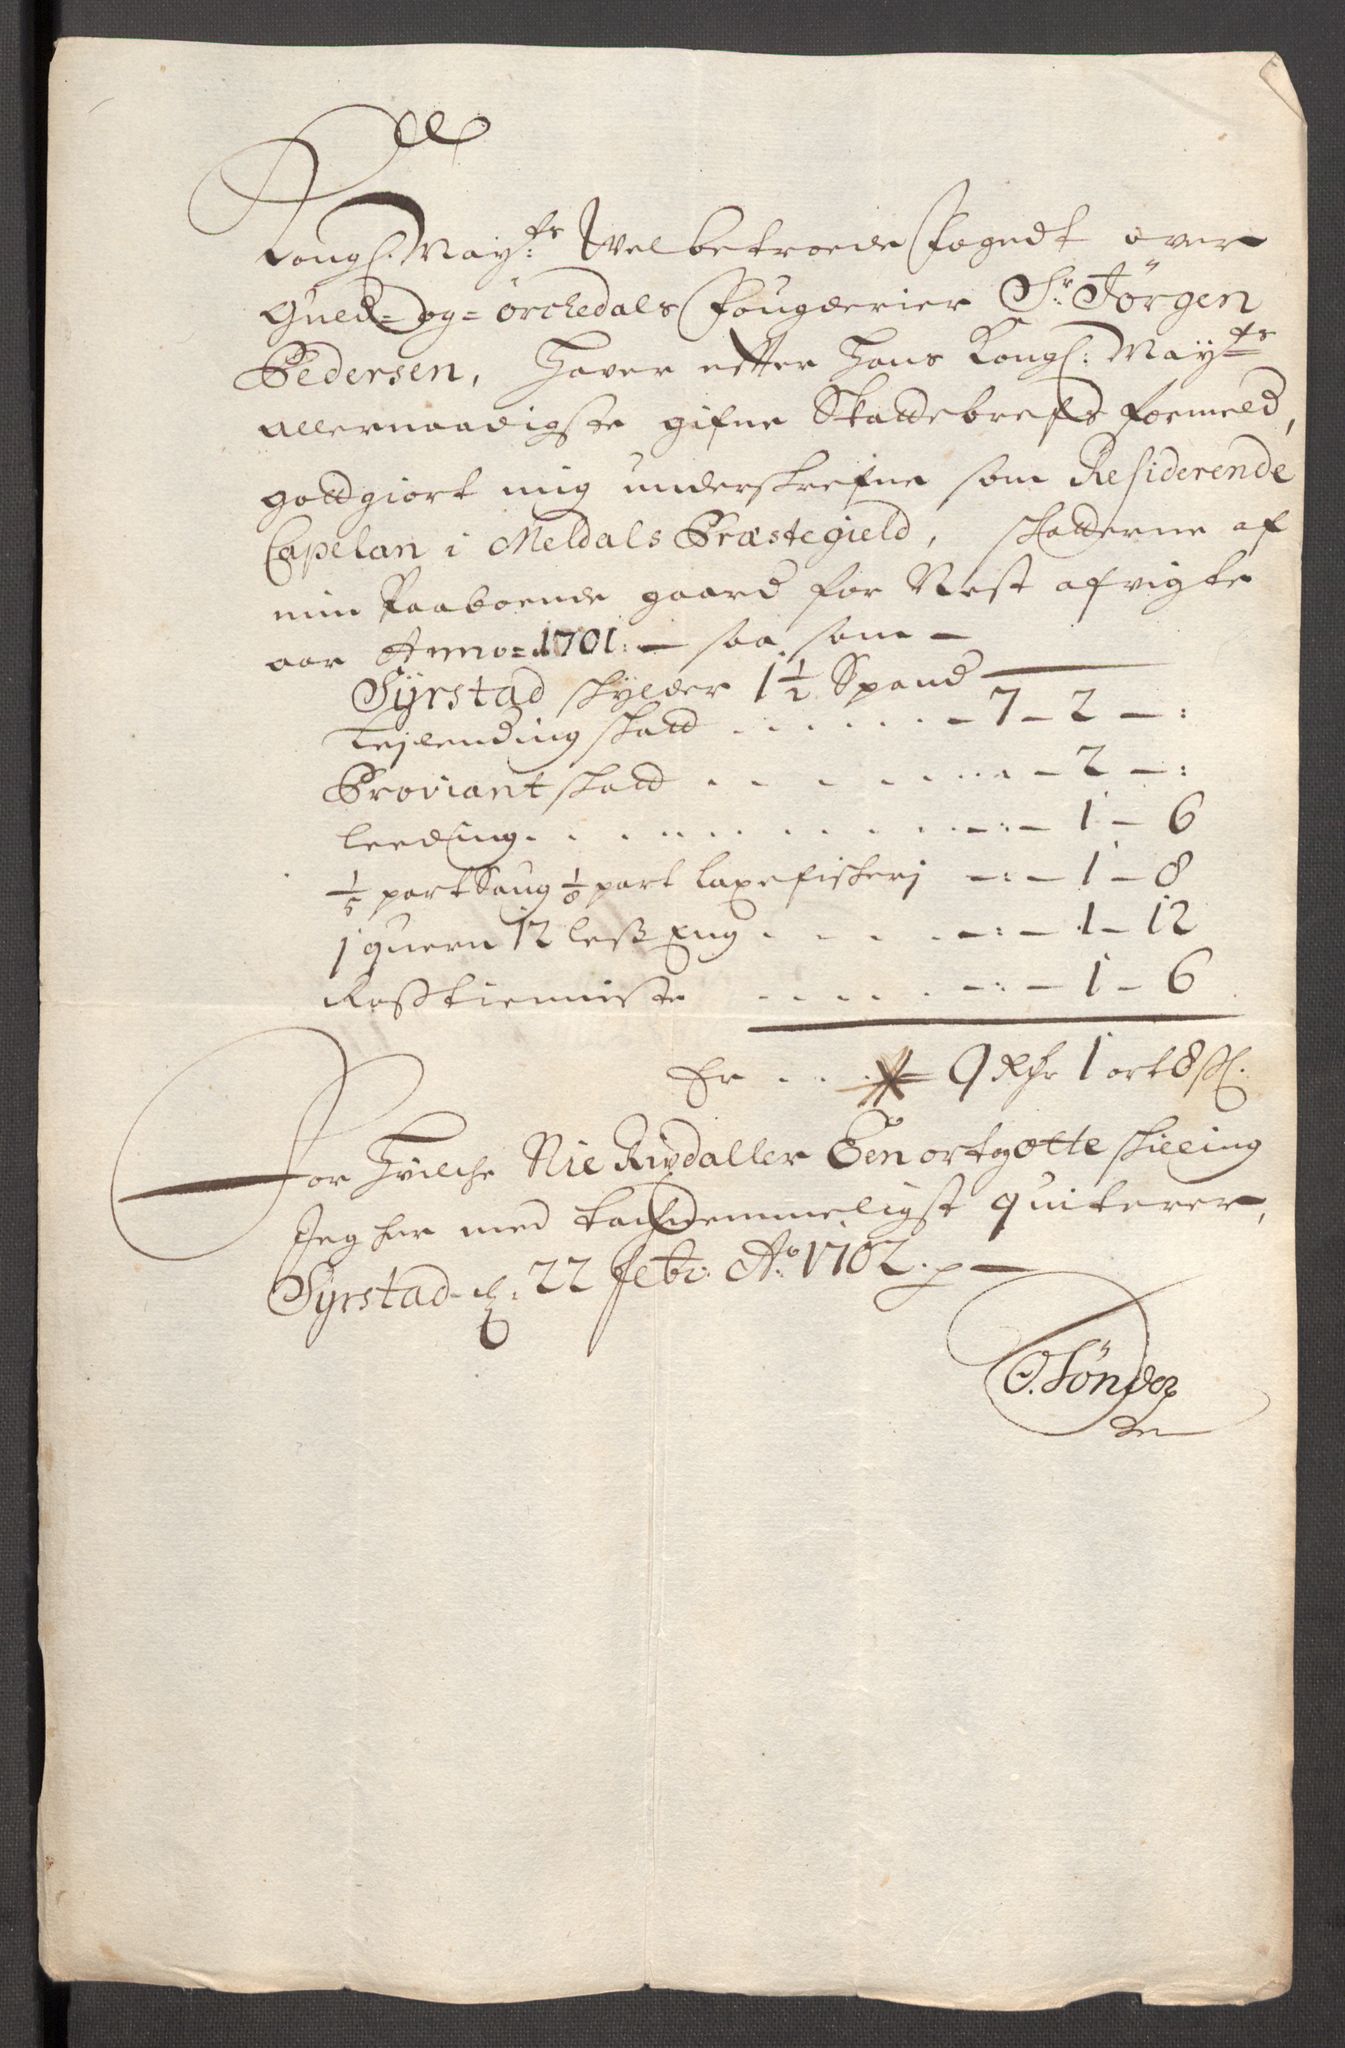 Kongl. May:ts Welbetroede Fogedt over
Guld= og= örchedals Fougderier Sr. Jörgen
Pedersen, Haver efter Hans Kongl: May:ts
allernaadigste gifne Skattebrefs formeld,
gottgiort mig underskrefne som Residerende
Capelan i Meldals Præstegield, skatterne af
min Paaboende gaard for Nest afvigte
aar Anno= 1701: — saa som —
Syrstad skylder 1 1/2 Spand —
Lejlending skatt . . . . . . . — 7 — 2 — :
Proviant skatt . . . . . . . . — 2 — :
leeding . . . . . . . . . . . — : — 1 — 6
1/5 part Saug 1/8 part laxefiskerj — : — 1 — 8
1 quern 12 less Eng . . . . . — : — 1 — 12
Rosstienniste . . . . . — : — 1 — 6
Er . . . 9 Rdr 1 ort 8 sl.
For Hvilche Nie Rixdaller Een ort og otte skilling
Jeg her med tachnemmeligst quiterer,
Syrstad d: 22 febr: Ao 1702. p —
O. Sönder